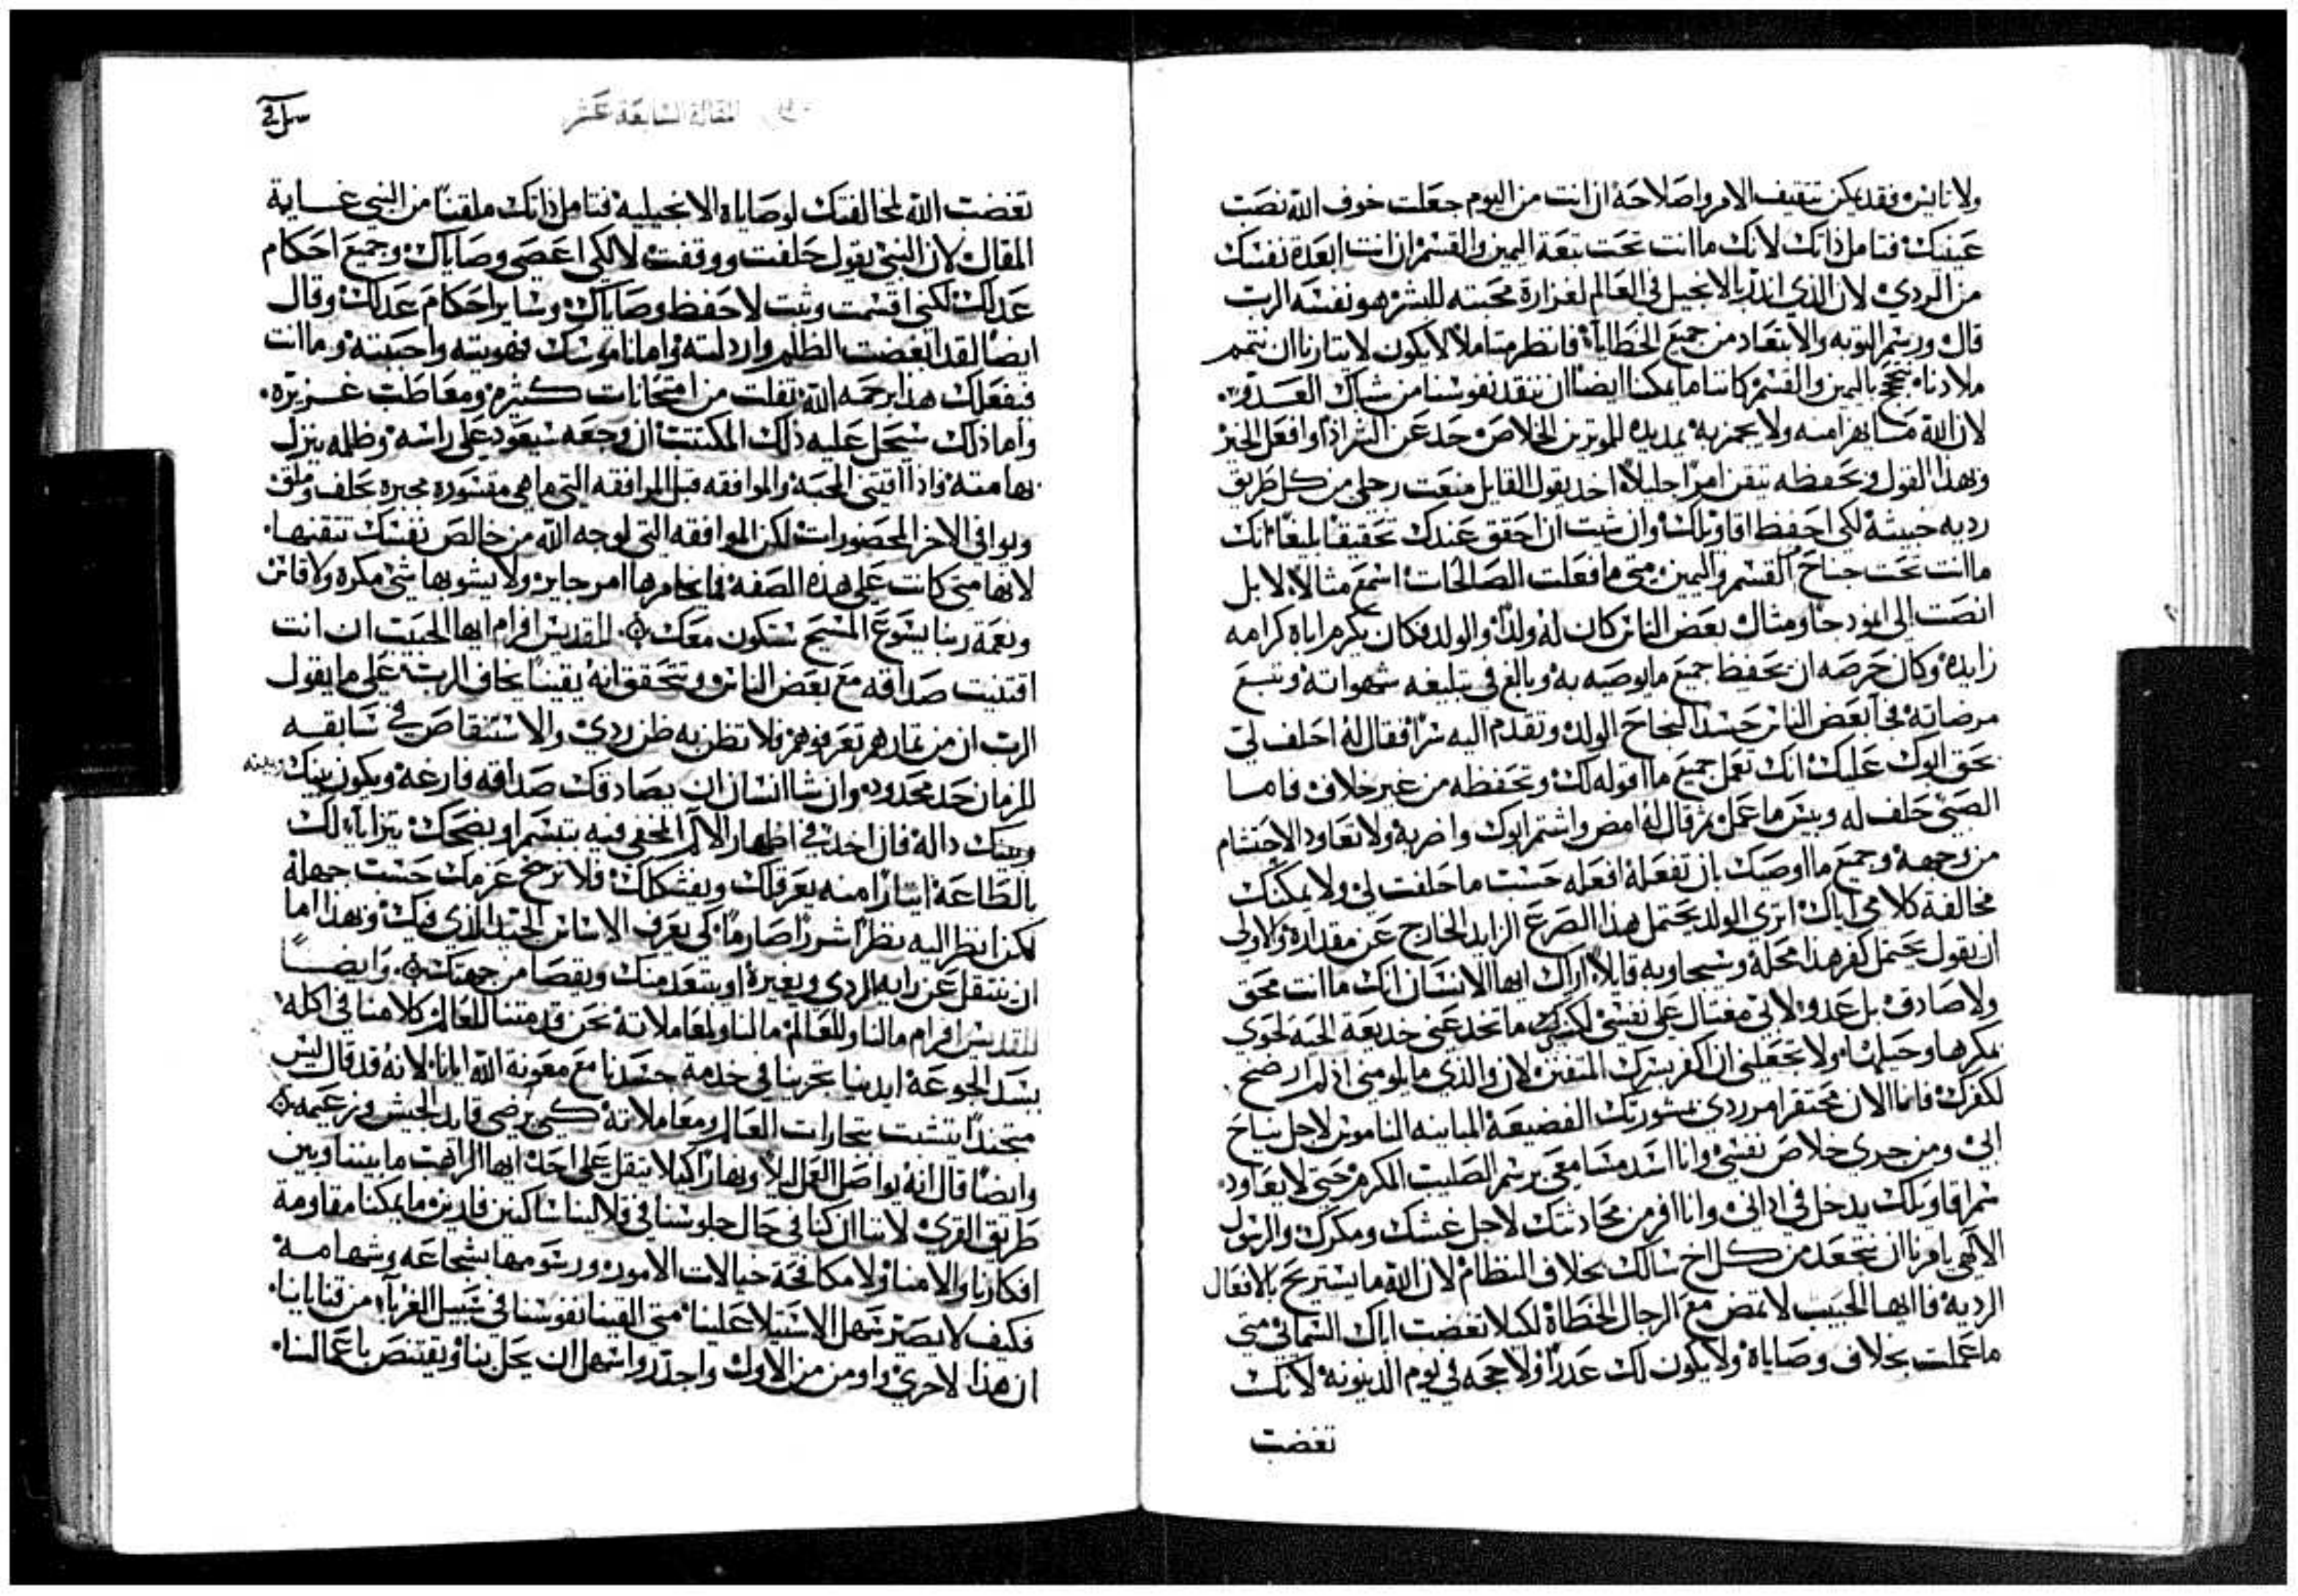 ولا تايس فقد يمكن تثقيف الامر واصلاحه ان انت من اليوم جعلت خوف الله نصب
عينيك فتامل ذاتك لانك ما انت تحت تبعة اليمين والقسم ان انت ابعدة نفسك
من الردي لان الذي انذر بالانجيل في العالم لغزارة محبته للبشر هو نفسه الرب
قال ورسم التوبه والابتعاد من جميع الخطايا فانظر متاملاً لا يكون لايثارنا ان نتمم
ملاذنا نحتج باليمين والقسم كاننا ما يمكنا ايضاً ان ننقذ نفوسنا من شباك العدو
لان الله ما يهزا منه ولا يجرب يمد يده للموثرين الخلاص حد عن الشر اذاً وافعل الخير
وبهذا القول وبحفظه تتقن امراً جليلاً اخد بقول القايل منعت رجلي من كل طريق
رديه خبيثة لكي احفظ اقاويلك وان شيت ان احقق عندك تحقيقاً بليغاً انك
ما انت تحت جناح القسم واليمين متي ما فعلت الصالحات اسمع مثالاً لا بل
انصت الي انموذجاً ومثال بعض الناس كان له ولداً والولد فكان يكرم اباه كرامه
زايده وكان حرصه ان يحفظ جميع ما يوصيه به ويبالغ في تبليغه شهواته ويتبع
مرضاته فجا بعض الناس حسد النجاح الولد وتقدم اليه سراً فقال له احلف لي
بحق ابوك عليك انك تعمل جميع ما اقوله لك وتحفظه من غير خلاف فاما
الصبي حلف له وبيس ما عمل ثم قال له امض واشتم ابوك واضربه ولا تعاود الاحتشام
من وجهه وجميع ما اوصيك بان تفعله افعله حسب ما حلفت لي ولا يمكنك
مخالفة كلامي اياك اتري الولد يحتمل هذا الصرع الزايد الخارج عن مقداره والاولي
ان يقول يحتمل كفر هذا محله وسيجاوبه قايلاً اراك ايها الانسان انك ما انت محق
ولا صادق بل عدو لاني مغتال علي نفسي لكنك ما تخدعني خديعة الحية لحوي
بمكرها وحيلتها ولا تجعلني ان اكفر بشرك المتفنن لان والذي ما يلومني اذ لم ارضخ
لكفرك فانا الان محتقر امر ردي مشورتك الفضيعة المباينه الناموس لاجل نياح
ابي ومن جدي خلاص نفسي وانا اسد مسامعي برسم الصليب المكرم حتي لا يعاود
سم اقاويلك يدخل في اداني وانا افر من محادثتك لاجل غشك ومكرك والرسول
الالهي يامرنا ان نبتعد من كل اخ سالك بخلاف النظام لان الله ما يستريح بالافعال
الرديه فايها الحبيب لا تمض مع الرجال الخطاة لكيلا تغضب اباك السماي متي
ما عملت بخلاف وصاياه ولا يكون لك عذراً ولا حجه في يوم الدينونة لانك
تغضب
المقالة السابعة عشر
تغضب الله لمخالفتك لوصاياه الانجيليه فتامل ذاتك ملقناً من النبي غاية
المقال لان النبي يقول حلفت ووقفت لا لكي اعصي وصاياك وجميع احكام
عدلك لكني اقسمت وثبت لاحفظ وصاياك وساير احكام عدلك وقال
ايضاً لقد ابغضت الظلم وارذلته واما ناموسك فهويته واحببته وما انت
فبفعلك هذا برحمه الله تفلت من امتحانات كثيره ومعاطب غزيره
واما ذلك سيحل عليه ذلك المكتتب ان وجعه سيعود علي راسه وظلمه ينزل
بهامته واذا اقتني المحبة والموافقه قبل الموافقه التي ما هي مقشوره مجبره بحلف وملق
ويوافي الاخر المحضورات لكن الموافقه التي لوجه الله من خالص نفسك تتقنها
لانها متي كانت علي هذه الصفه فما يخامرها امر جاير ولا يشوبها شي مكره ولا قاتل
ونعمة ربنا يسوع المسيح ستكون معك للقديس افرام ايها الحبيب ان انت
اقتنيت صداقه مع بعض الناس وتتحقق انه يقيناً يخاف الرب علي ما يقول
الرب ان من ثمارهم تعرفوهم فلا تظن به ظن ردي والاستنقاص في سابقه
الزمان حد محدود وان شا انسان ان يصادقك صداقه فارغة ويكون بينك وبينه
وبينك دالة فان اخد في اظهار الالم المخفي فيه بتبسم او بضحك يترايا لك
بالطاعة ايثاراً منه يعرقلك ويفشكلك فلا ترخ عزمك حسب جهله
لكن انظر اليه نظراً شزراً صارماً كي يعرف الاساس الجيد الذي فيك وبهذا اما
ان ينتقل عن رايه الردي ويغيره او يبتعد منك ويقصا من جهتك وايضاً
للقديس افرام ما لنا وللعالم ما لنا ولمعاملاته نحن قد متنا للعالم كلامنا في اكله
بسد الجوعة ايدينا تجزينا في خدمة جسدنا مع معونة الله ايانا لانه قد قال ليس
متجنداً يتشبت بتجارات العالم ومعاملاته كي يرضي قايد الجيش وزعيمه
وايضاً قال انه يواصل العمل ليلاً ونهاراً كيلا يتقل علي احد ايها الراهب ما بيننا وبين
طريق القري لاننا ان كنا في حال جلوسنا في قلالينا ساكنين قارين ما يمكنا مقاومة
افكارنا والامنا ولا مكافحة خيالات الامور ورسومها بشجاعه وشهامه
فكيف لا يصير سهل الاستيلا علينا متي القينا نفوسنا في سبيل الغربآ من قنايانا
ان هذا لاحري واومن من الاول واجدر واسهل ان يحل بنا ويقتنص باعمالنا